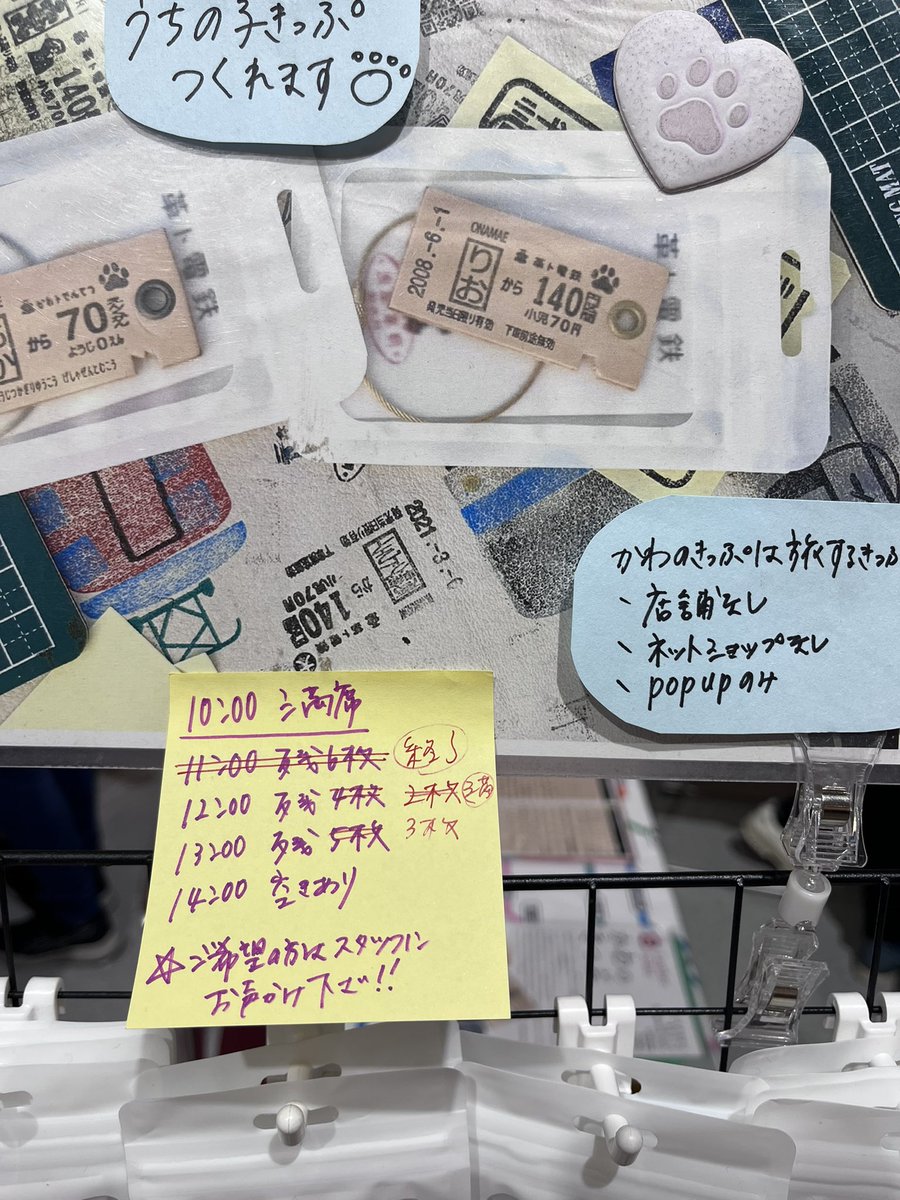 うちの子きっぷ
つくれます
革ト電鉄
かわトでんてつ
から 70
ようじ0えん
げしゃぜんとむこう
革ト電鉄
2008.-6.-1
ONAMAE
りお
から
革ト電鉄
140円
小児70円
発売当日限り有効 下車前途無効
2021.-3.-
から
140円
小児70円
発売当日限り有効
下車前途無効
かわのきっぷは旅するきっぷ
、店舗なし
、ネットショップなし
、popupのみ
10:00 満席
11:00 残6枚 終了
12:00 残4枚 2枚 満
13:00 残5枚 3枚
14:00 空きあり
☆ご希望の方はスタッフに
お声かけ下さい!!